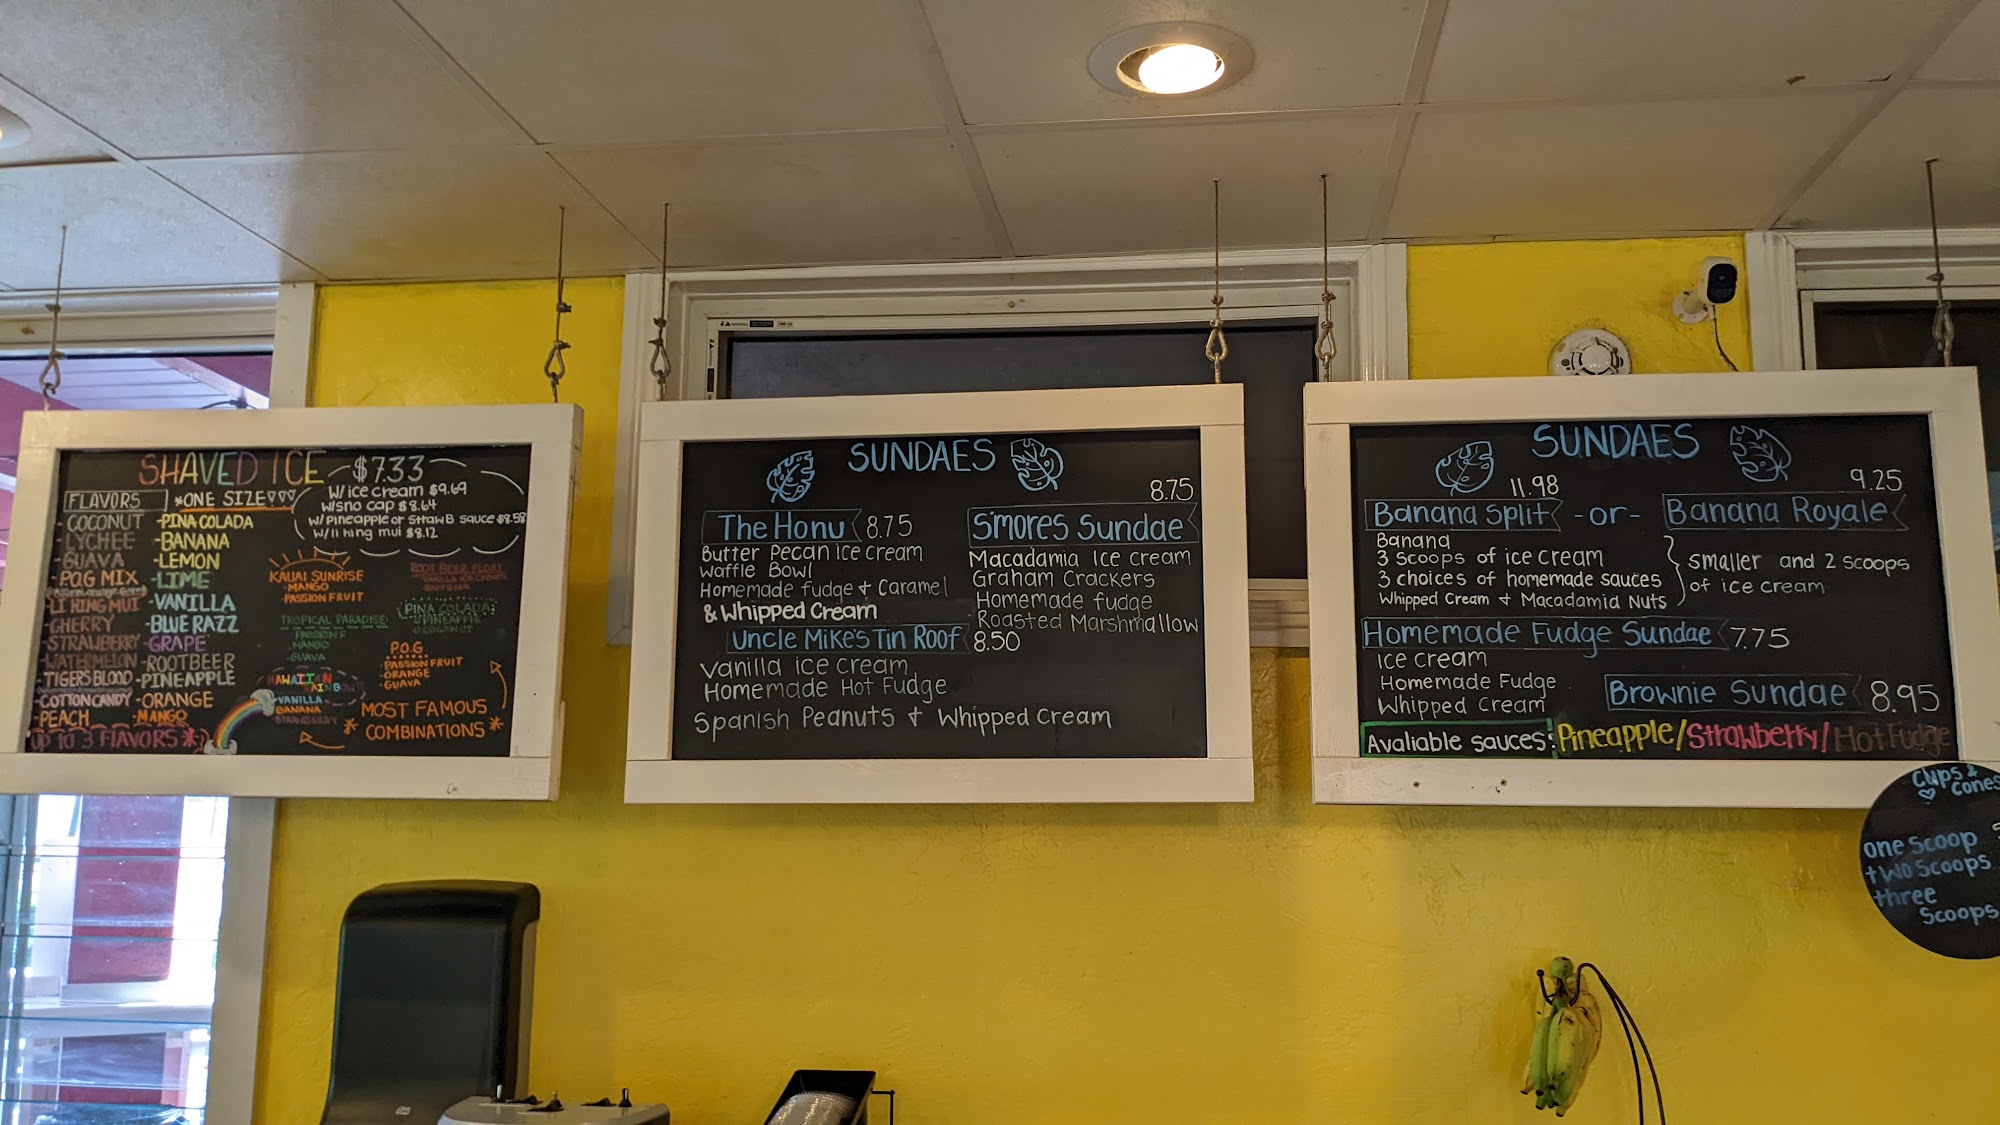 SHAVED ICE
$7.33
FLAVORS
*ONE SIZE
W/ ice cream $9.69
w/sno cap $8.64
w/ Pineapple or StrawB sauce $8.58
w/ li hing mui $8.12
- COCONUT
- LYCHEE
- GUAVA
- P.O.G MIX
- LI HING MUI
- CHERRY
- STRAWBERRY
- WATERMELON
- TIGERS BLOOD
- COTTON CANDY
- PEACH
UP TO 3 FLAVORS*
- PINA COLADA
- BANANA
- LEMON
- LIME
- VANILLA
- BLUE RAZZ
- GRAPE
- ROOTBEER
- PINEAPPLE
- ORANGE
- MANGO
KAUAI SUNRISE
- MANGO
- PASSION FRUIT
ROOT BEER FLOAT
VANILLA ICE CREAM
ROOTBEER
TROPICAL PARADISE:
PASSION F
- MANGO
- GUAVA
PINA COLADA
PINEAPPLE
COCONUT
P.O.G
- PASSION FRUIT
- ORANGE
- GUAVA
HAWAIIAN
RAINBOW
- VANILLA
BANANA
STRAWBERRY
* MOST FAMOUS
COMBINATIONS *
SUNDAES
The Honu 8.75
Butter Pecan ice cream
Waffle Bowl
Homemade fudge + Caramel
& Whipped Cream
8.75
S'mores Sundae
Macadamia Ice cream
Graham Crackers
Homemade fudge
Roasted Marshmallow
Uncle Mike's Tin Roof 8.50
Vanilla ice cream
Homemade Hot Fudge
Spanish Peanuts + Whipped Cream
SUNDAES
11.98
9.25
Banana Split -or- Banana Royale
Banana
3 Scoops of ice cream
3 choices of homemade sauces
Whipped Cream + Macadamia Nuts
smaller and 2 scoops
of ice cream
Homemade Fudge Sundae 7.75
Ice cream
Homemade Fudge
Whipped Cream
Brownie Sundae 8.95
Avaliable sauces: Pineapple/Strawberry/Hot Fudge
Cups &
Cones
one Scoop
two Scoops
three
Scoops